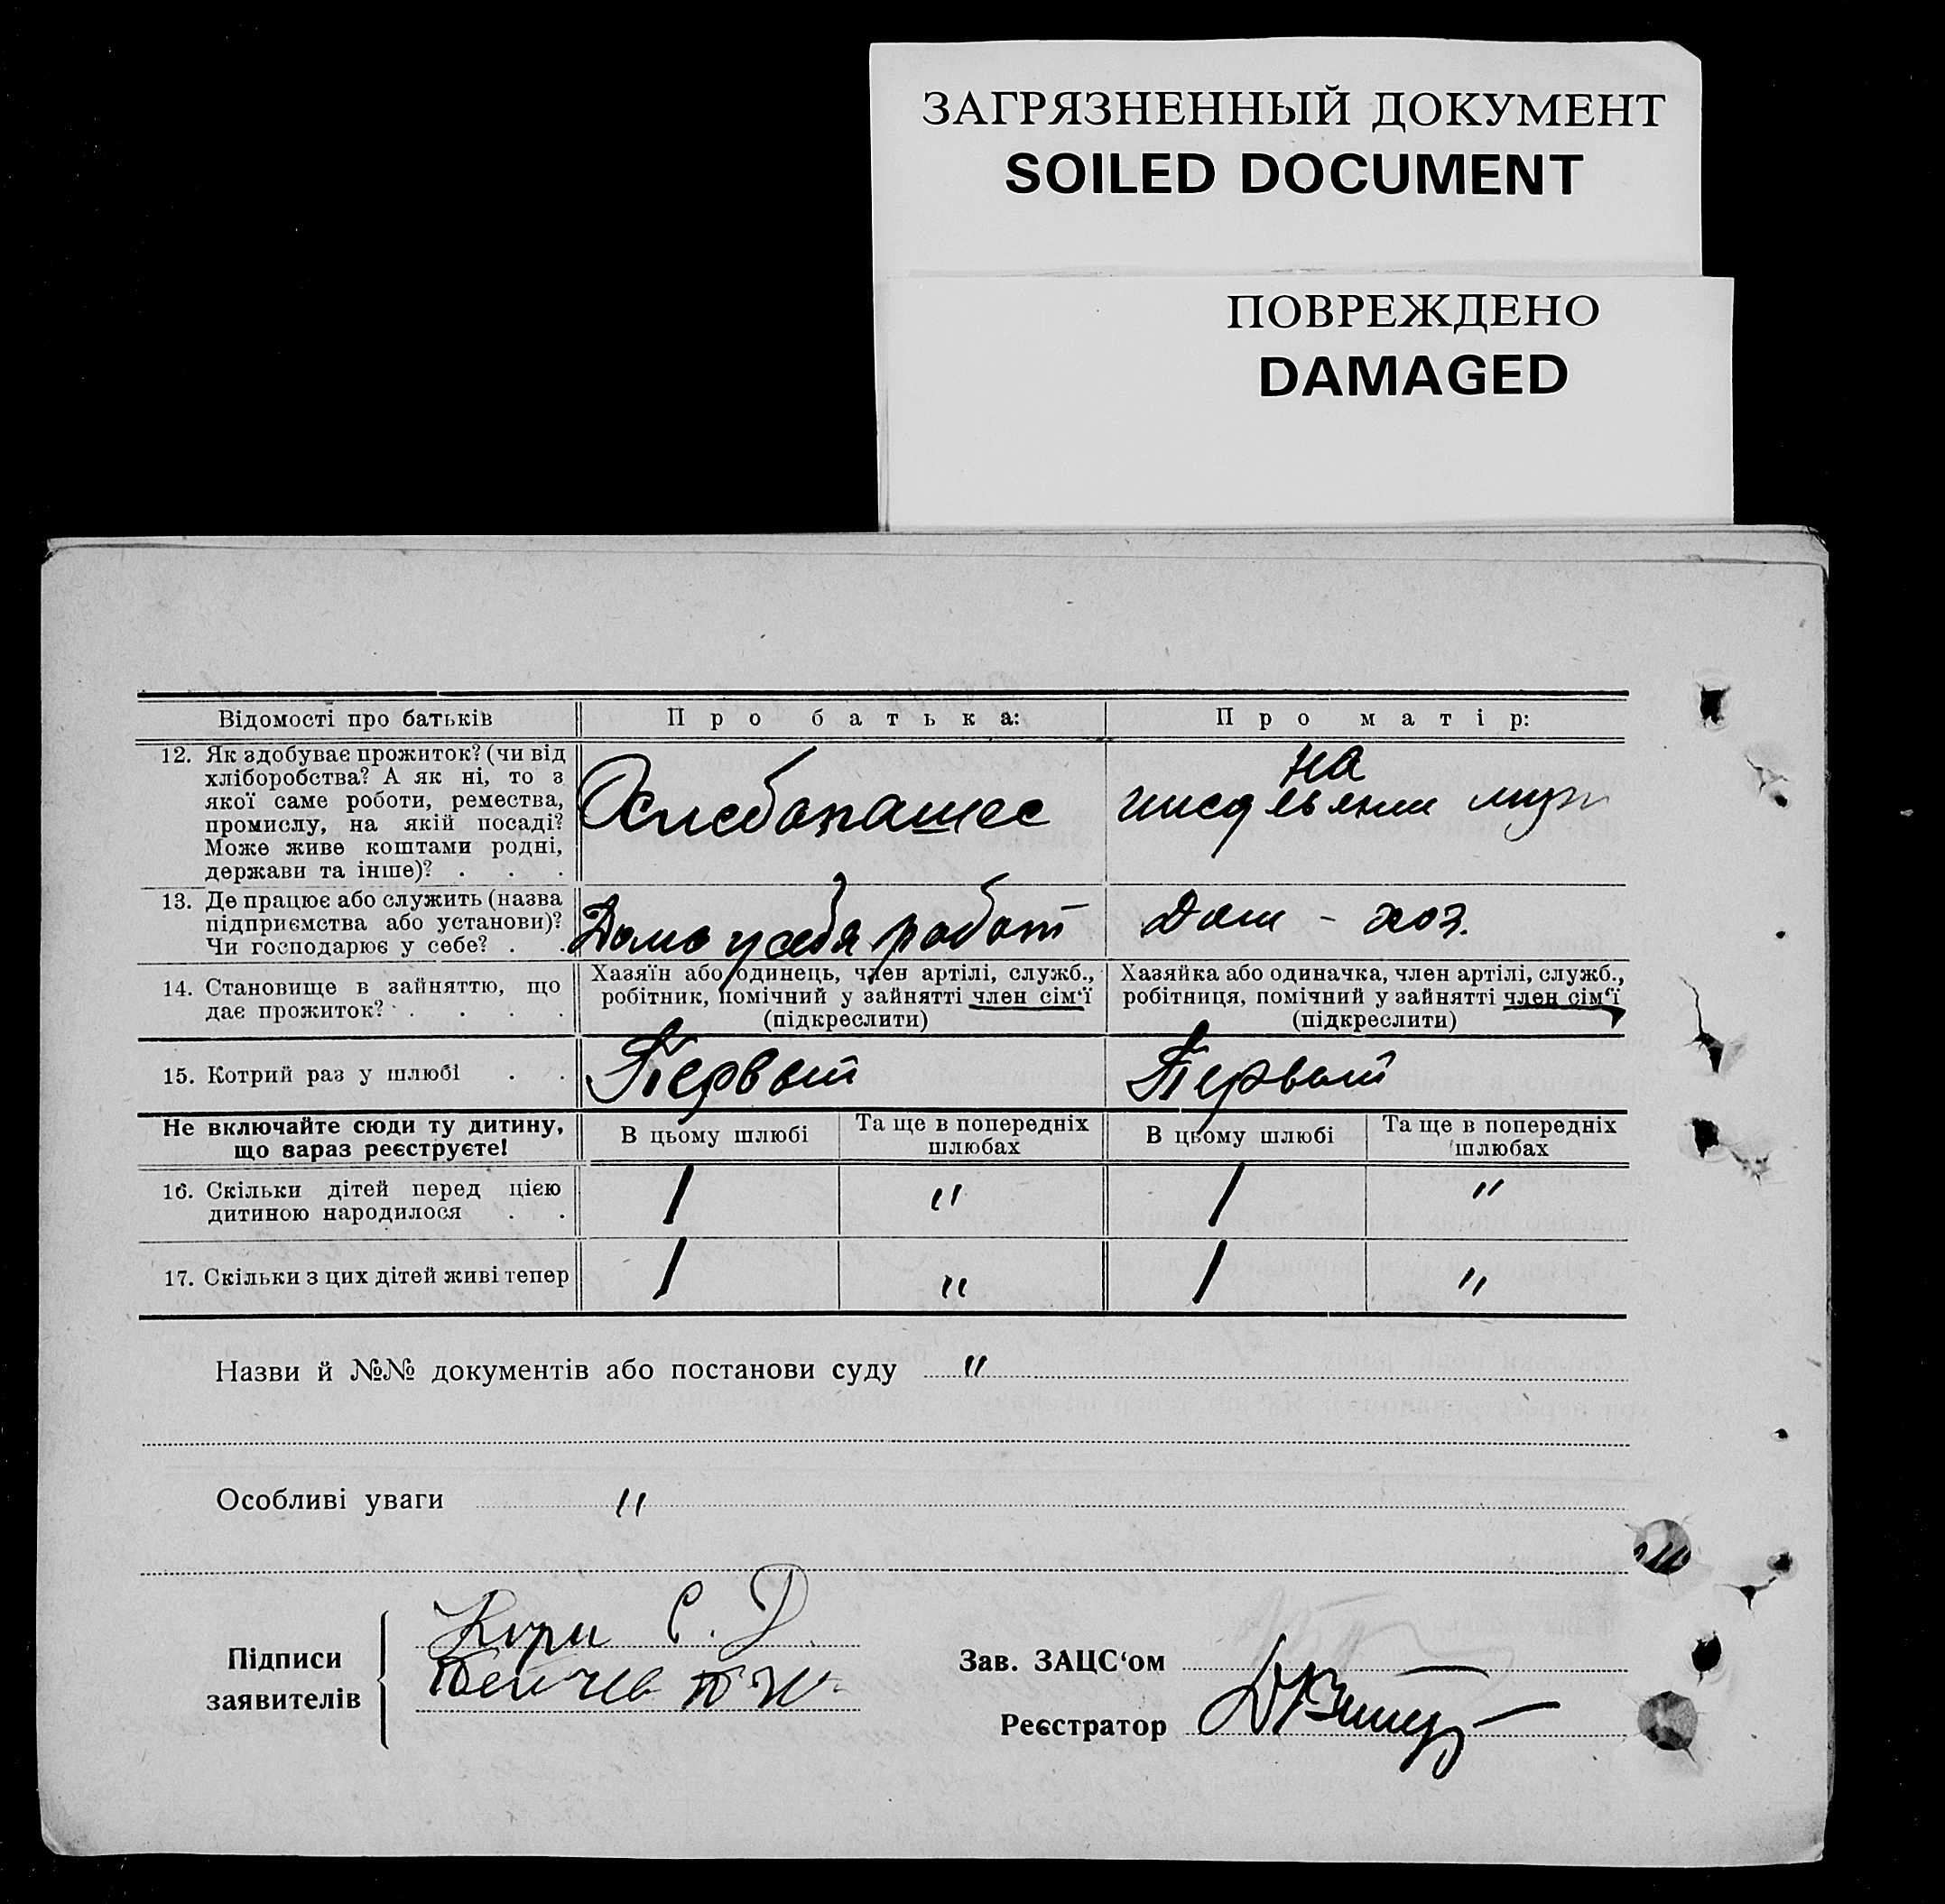 ЗАГРЯЗНЕННЫЙ ДОКУМЕНТ
SOILED DOCUMENT
ПОВРЕЖДЕНО
DAMAGED
Відомості про батьків
Про батька:
Про матір:
12. Як здобуває прожиток? (чи від
хліборобства? А як ні, то з
якої саме роботи, ремества,
промислу, на якій посаді?
Може живе коштами родні,
держави та інше)? . . .
Хлебопашес
на
иждевении муж
13. Де працює або служить (назва
підприємства або установи)?
Чи господарює у себе? . .
Дома у себя работ
Дом - хоз.
14. Становище в зайняттю, що
дає прожиток? . . . .
Хазяїн або одинець, член артілі, служб.,
робітник, помічний у зайнятті член сім‘ї
(підкреслити)
Хазяйка або одиначка, член артілі, служб.,
робітниця, помічний у зайнятті член сім‘ї
(підкреслити)
15. Котрий раз у шлюбі . .
Первый
Первый
Не включайте сюди ту дитину,
що вараз реєструєте!
В цьому шлюбі
Та ще в попередніх
шлюбах
В цьому шлюбі
Та ще в попередніх
шлюбах
16. Скільки дітей перед цією
дитиною народилося . .
1
"
1
"
17. Скільки з цих дітей живі тепер
1
"
1
"
Назви й №№ документів або постанови суду "
Особливі уваги "
Підписи
заявителів
С. Д.
Зав. ЗАЦС‘ом
Реєстратор